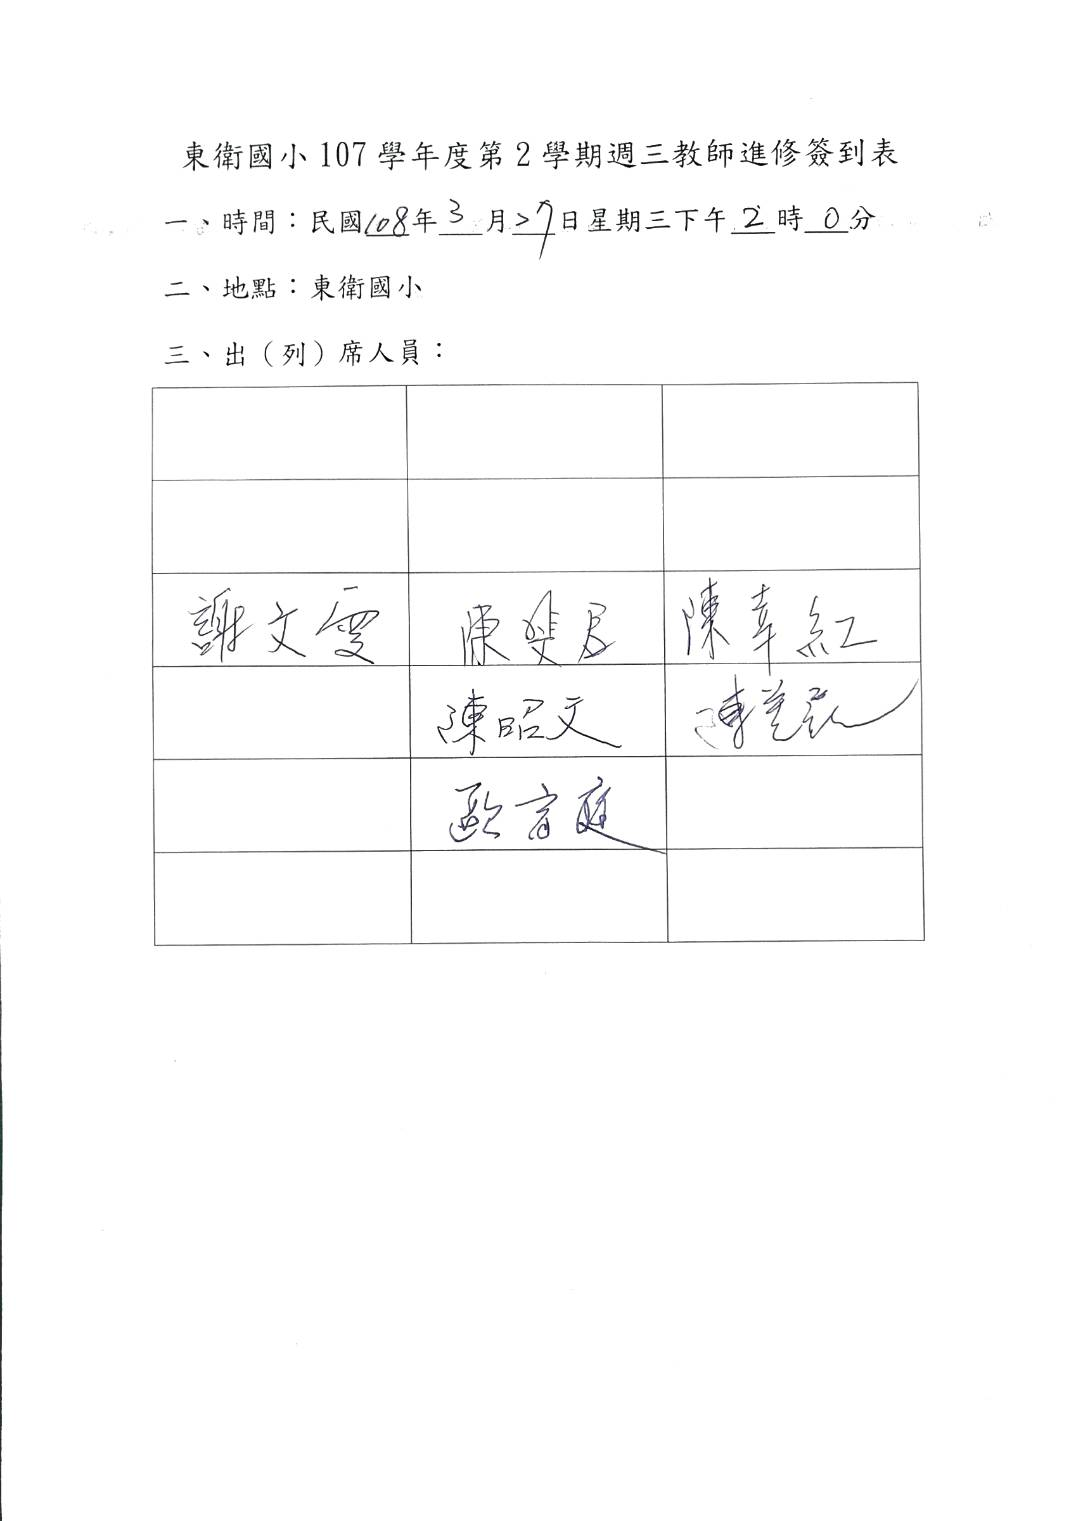 東衛國小 107 學年度第 2 學期週三教師進修簽到表
一、時間：民國108年3月27日星期三下午2時0分
二、地點：東衛國小
三、出（列）席人員：
謝文雯 陳雙君 陳幸紅
陳昭文 陳
歐育庭